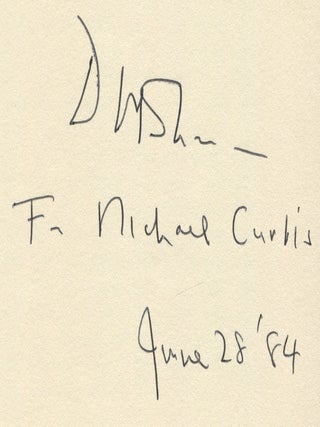 Fr Michael Curtis
June 28 '84